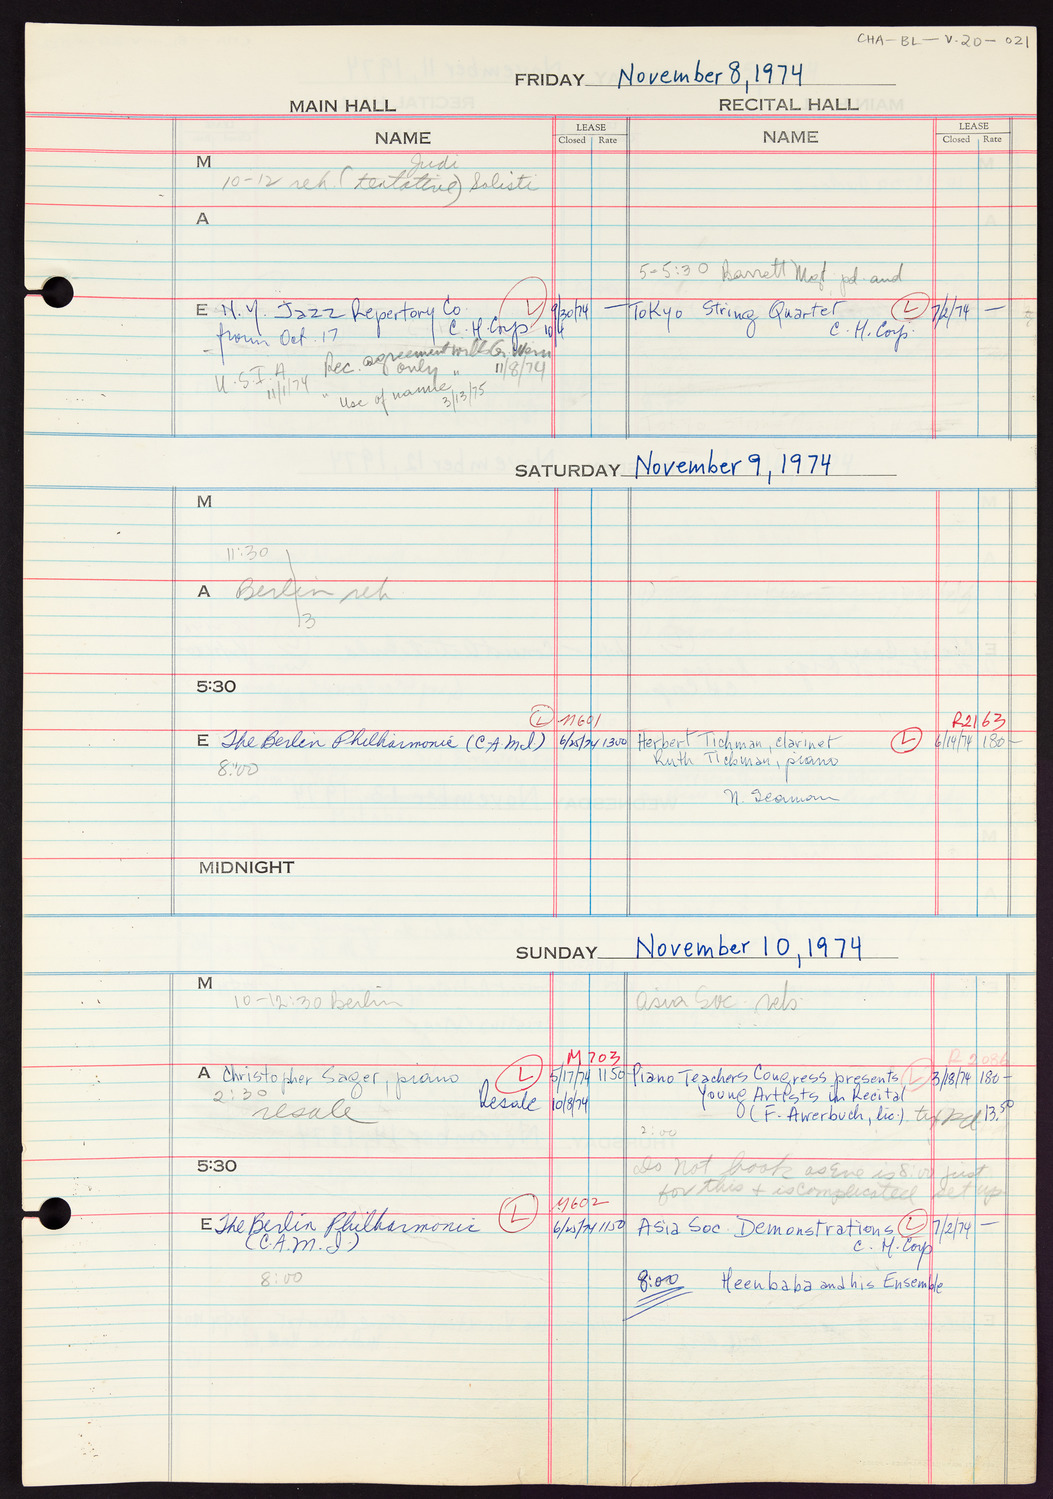 CHA-BL-V.20-021
FRIDAY November 8, 1974
MAIN HALL
RECITAL HALL
NAME
LEASE
Closed Rate
NAME
LEASE
Closed Rate
M
Judi
10-12 reh. (tentative) Solisti
A
5-5:30 Barrett Mgt. pd. and
E N.Y. Jazz Repertory Co L 9/30/74 —
from Oct. 17 C.H. Corp 10/4
Tokyo String Quartet L 7/2/74 —
C.H. Corp.
Rec. agreement with G. Wein
only " 11/8/74
U.S.I.A.
11/1/74
" Use of name 3/13/75
SATURDAY November 9, 1974
M
11:30
A Berlin reh
3
5:30
L M601
E The Berlin Philharmonic (C.A.M.I.) 6/25/74 1300
8:00
R2163
Herbert Tichman, clarinet L 6/14/74 180-
Ruth Tichman, piano
N. Seaman
MIDNIGHT
SUNDAY November 10, 1974
M
10-12:30 Berlin
Asia Soc. reh.
M703
A Christopher Sager, piano L 5/17/74 1150
2:30 Resale 10/8/74
resale
R2086
Piano Teachers Congress presents L 3/18/74 180-
Young Artists in Recital
(F. Awerbuch, lic.) pd 13.50
2:00
5:30
Do Not book as Eve is 8:00 just
for this + is complicated set up
M602
E The Berlin Philharmonic L 6/25/74 1150
(C.A.M.I.)
8:00
Asia Soc. Demonstrations L 7/2/74 —
C.H. Corp
8:00 Heenbaba and his Ensemble